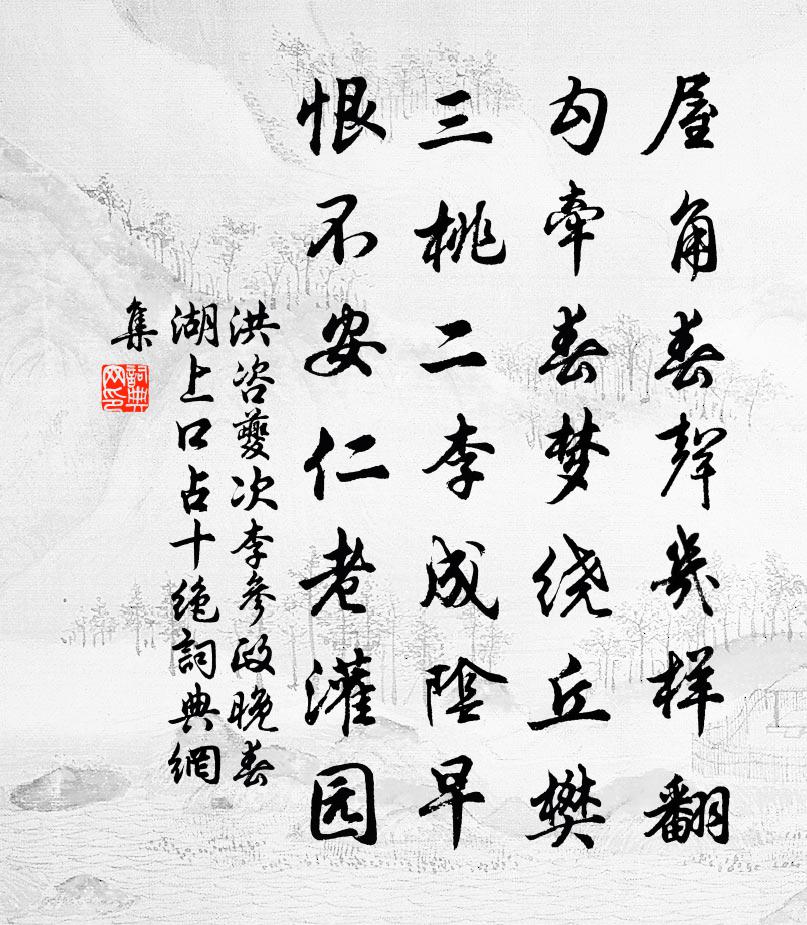 屋角春聲幾样翻
勾牵春梦绕丘樊
三桃二李成陰早
恨不安仁老灌园
洪咨夔次李參政晚春
湖上口占十绝詞典網
集
詞典网印